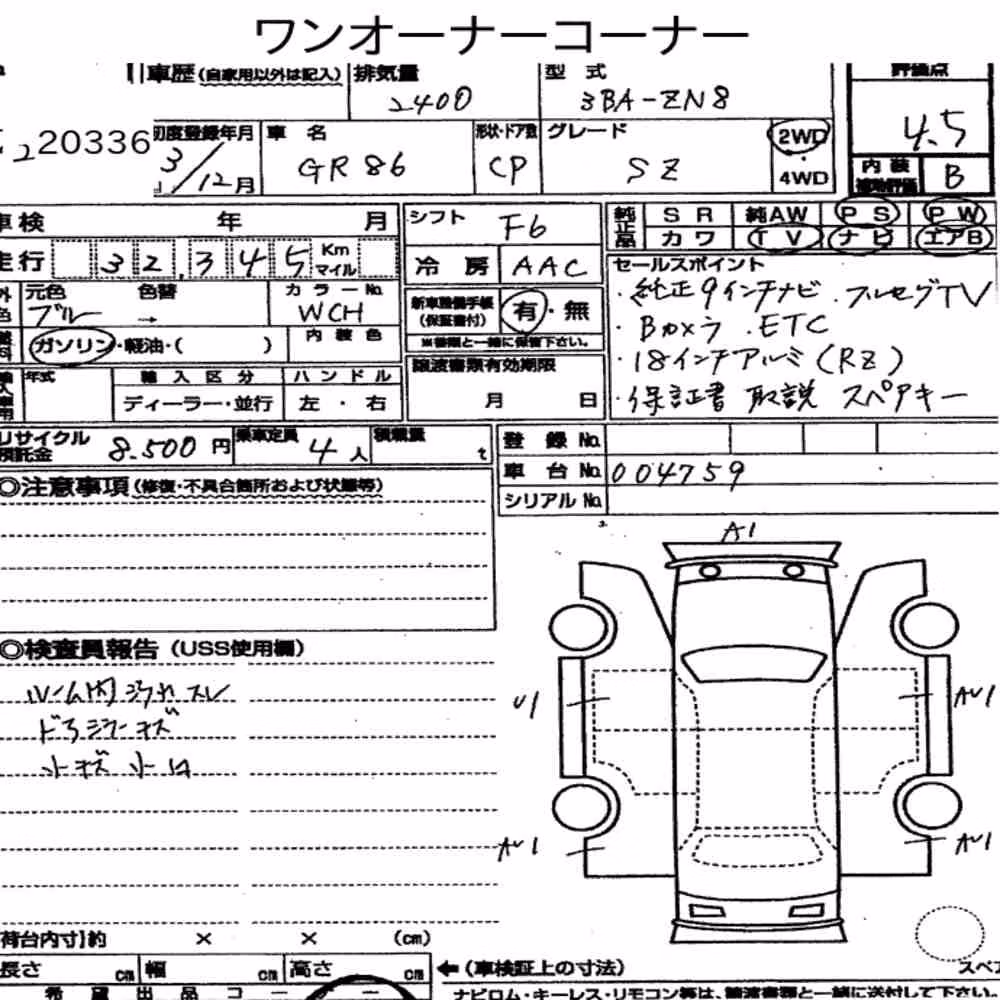 ワンオーナーコーナー
車歴(自家用以外は記入) 排気量 型式 評価点
2400 3BA-ZN8 4.5
220336 初度登録年月 車名 形状・ドア数 グレード 2WD
3/12月 GR86 CP SZ 4WD 内装 補助評価 B
車検 年 月 シフト F6 純正品 SR 純AW PS PW
カワ TV ナビ エアB
走行 32,345 Km マイル 冷房 AAC セールスポイント
元色 色替 カラーNo. 新車整備手帳(保証書付) 有・無 ・純正9インチナビ.フルセグTV
ブルー → WCH ・Bカメラ .ETC
ガソリン・軽油・( ) 内装色 ※書類と一緒に保管下さい。 ・18インチアルミ(RZ)
年式 輸入区分 ハンドル 譲渡書類有効期限 ・保証書 取説 スペアキー
ディーラー・並行 左・右 月 日
リサイクル預託金 8.500円 乗車定員 4人 積載量 t 登録No.
車台No. 004759
シリアルNo.
◎注意事項(修復・不具合箇所および状態等)
A1
◎検査員報告(USS使用欄)
ルーム内シワヤスレ
U1 AU1
小キズ 小凹
AU1 AU1
荷台内寸約 × × (cm)
長さ cm 幅 cm 高さ cm ←(車検証上の寸法) スペア
希望出品コーナー ナビロム・キーレス・リモコン等は、譲渡書類と一緒に送付して下さい。